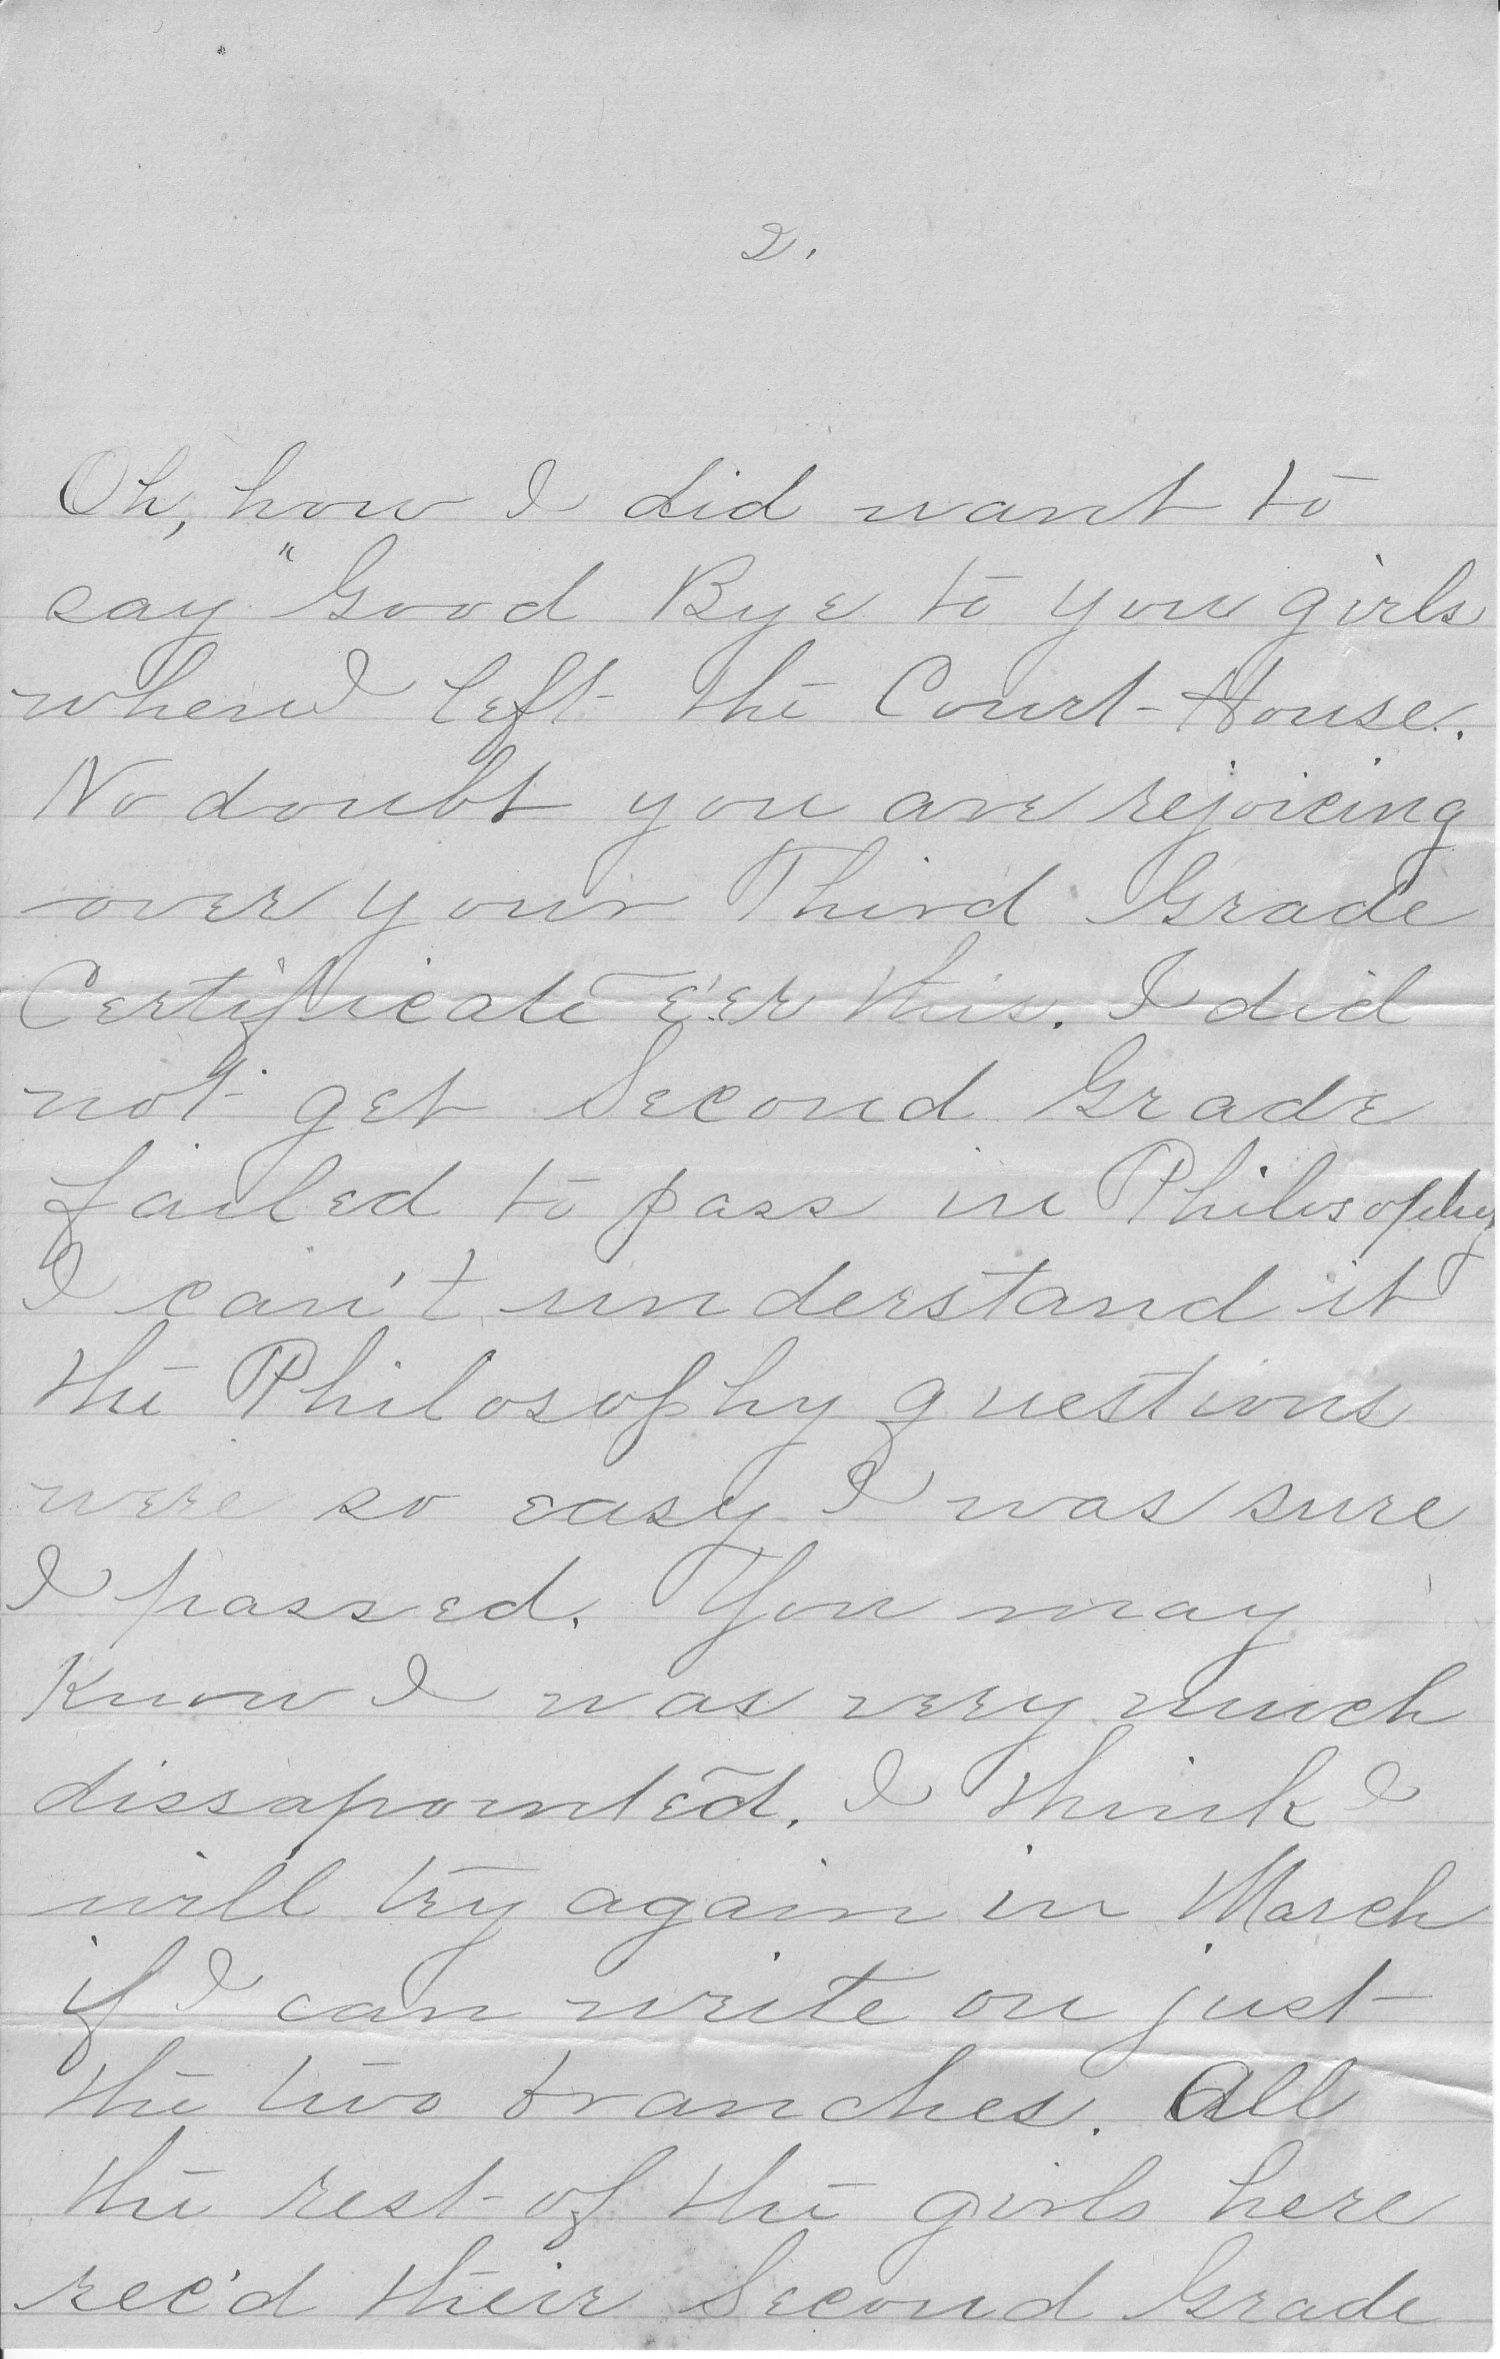 2.
Oh, how I did want to
say "Good Bye to you girls
when I left the Court-House.
No doubt you are rejoicing
over your Third Grade
Certificate e'er this. I did
not get Second Grade
failed to pass in Philosophy
I can't understand it
the Philosophy questions
were so easy I was sure
I passed. You may
know I was very much
dissapointed. I think I
will try again in March
if I can write on just
the two branches. All
the rest of the girls here
rec'd their Second Grade